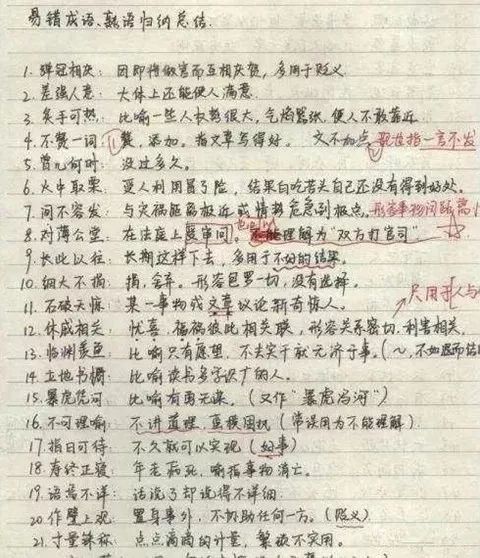 易错成语、熟语归纳总结.
1. 弹冠相庆: 因即将做官而互相庆贺, 多用于贬义
2. 差强人意: 大体上还能使人满意.
3. 炙手可热: 比喻一些人权势很大, 气焰嚣张, 使人不敢靠近
4. 不赞一词: 赞, 添加. 指文章写得好. 文不加点 现准指一言不发
5. 曾几何时: 没过多久.
6. 火中取栗: 受人利用冒了险, 结果白吃苦头自己还没有得到好处.
7. 间不容发: 与灾祸距离极近或情势危急到极点. 形容事物间距离小
8. 对薄公堂: 在法庭上受审问. 理解为“双方打官司”
9. 长此以往: 长期这样下去, 多用于不好的结果.
10. 细大不捐: 捐, 舍弃. 形容包罗一切, 没有选择.
11. 石破天惊: 某一事物或文章议论新奇惊人.
只用于人与
12. 休戚相关: 忧喜、福祸彼此相关联, 形容关系密切. 利害相关.
13. 临渊羡鱼: 比喻只有愿望, 不去实干就无济于事. (~, 不如退而结
14. 立地书橱: 比喻读书多学识广的人.
15. 暴虎凭河: 比喻有勇无谋. (又作“暴虎冯河”)
16. 不可理喻: 不讲道理, 蛮横固执 (常误用为不能理解)
17. 指日可待: 不久就可以实现 (好事)
18. 寿终正寝: 年老病死, 喻指事物消亡.
19. 语焉不详: 话说了却说得不详细.
20. 作壁上观: 置身事外, 不协助任何一方. (贬义)
21. 寸量铢称: 点点滴滴的计量, 繁琐不实用.